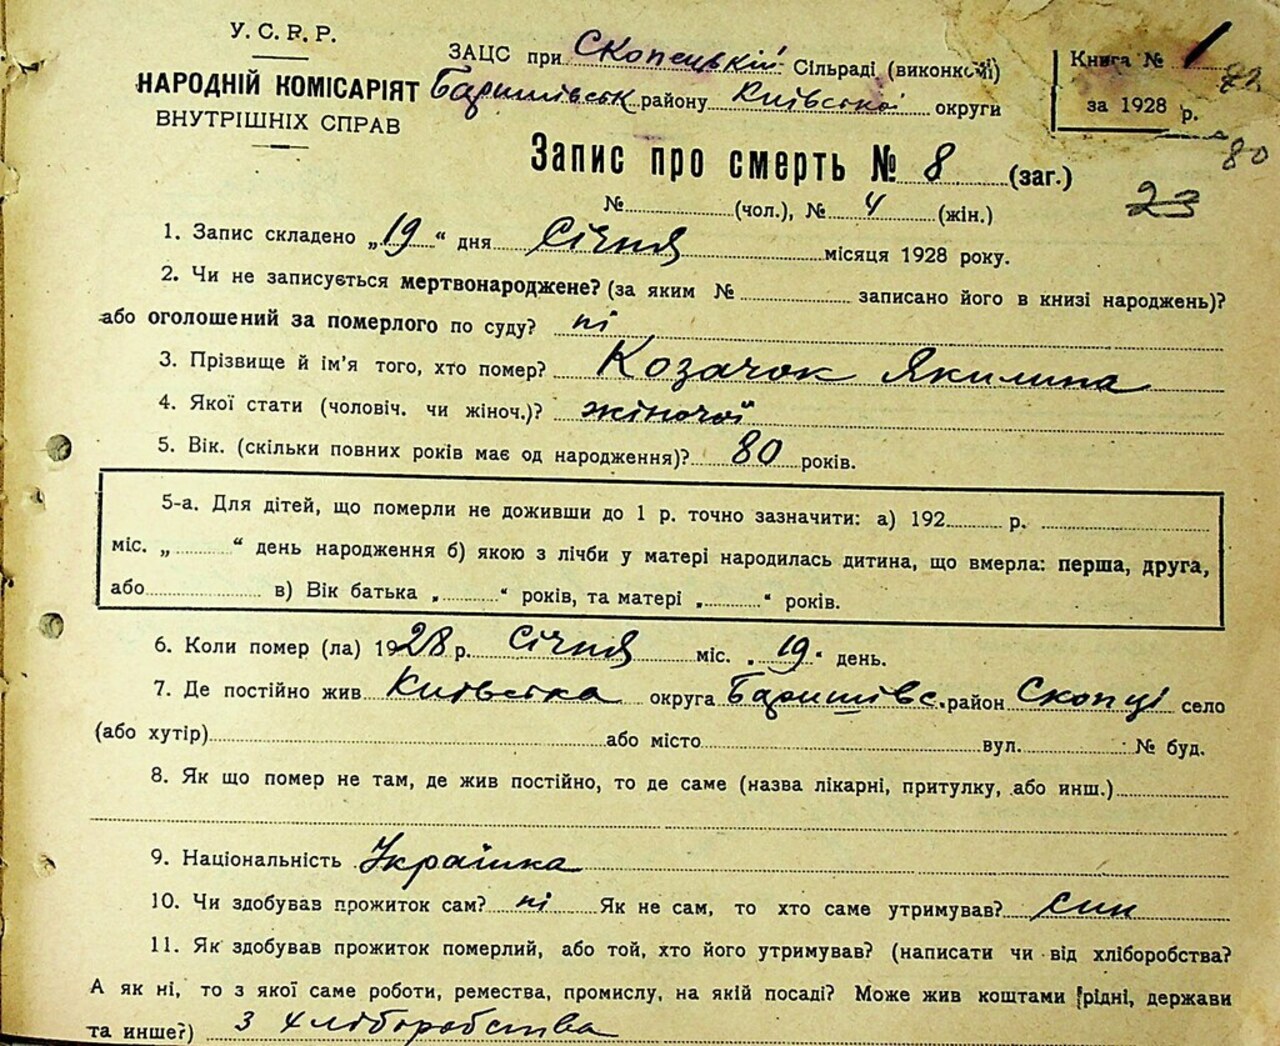 У. С. Р. Р.
НАРОДНІЙ КОМІСАРІЯТ
ВНУТРІШНІХ СПРАВ
ЗАЦС при Скопецькій Сільраді (виконкомі)
Баришівськ району Київської округи
Книга № 1
за 1928 р.
72
80
23
Запис про смерть № 8 (заг.)
№ (чол.), № 4 (жін.)
1. Запис складено „19“ дня Січня місяця 1928 року.
2. Чи не записується мертвонароджене? (за яким № записано його в книзі народжень)?
або оголошений за померлого по суду? ні
3. Прізвище й ім’я того, хто помер? Козачок Якилина
4. Якої стати (чоловіч. чи жіноч.)? жіночої
5. Вік. (скільки повних років має од народження)? 80 років.
5-а. Для дітей, що померли не доживши до 1 р. точно зазначити: а) 192 р.
міс. „ “ день народження б) якою з лічби у матері народилась дитина, що вмерла: перша, друга,
або в) Вік батька „ “ років, та матері „ “ років.
6. Коли помер (ла) 1928 р. Січня міс. „19“ день.
7. Де постійно жив Київська округа Баришівс. район Скопці село
(або хутір) або місто вул. № буд.
8. Як що помер не там, де жив постійно, то де саме (назва лікарні, притулку, або инш.)
9. Національність Українка
10. Чи здобував прожиток сам? ні Як не сам, то хто саме утримував? син
11. Як здобував прожиток померлий, або той, хто його утримував? (написати чи від хліборобства?
А як ні, то з якої саме роботи, ремества, промислу, на якій посаді? Може жив коштами рідні, держави
та инше?) З хліборобства